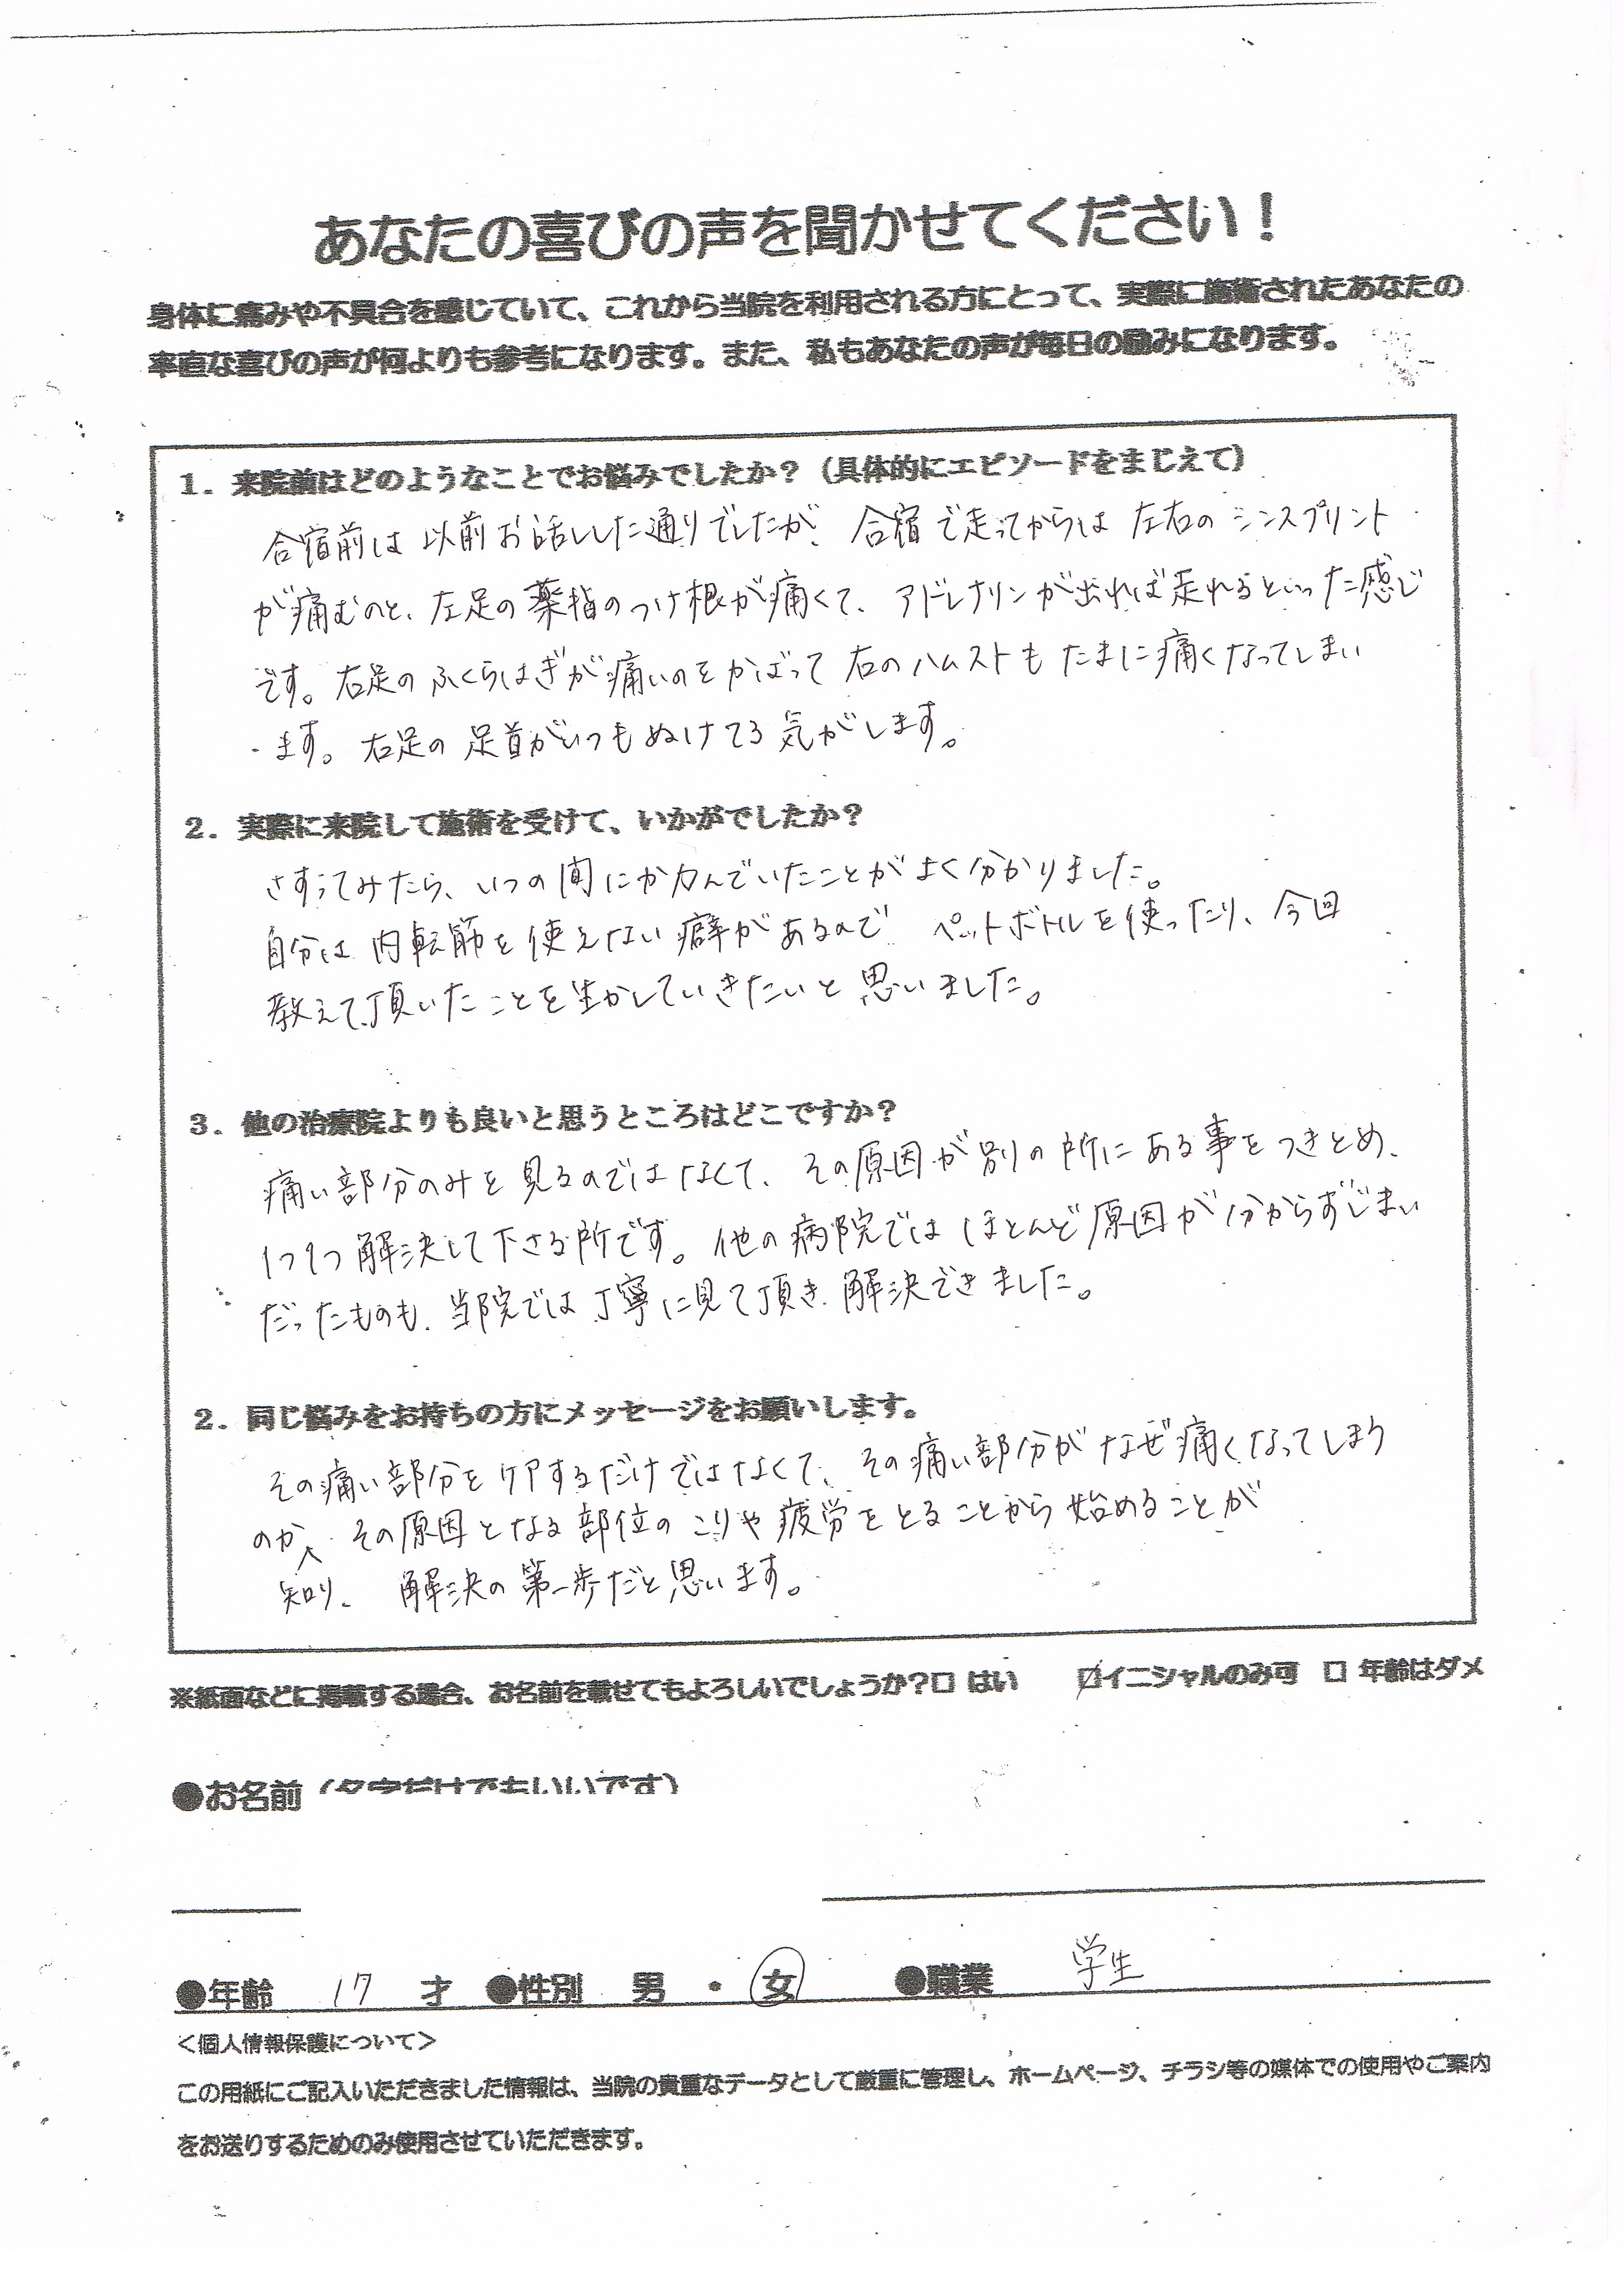 あなたの喜びの声を聞かせてください！
身体に痛みや不具合を感じていて、これから当院を利用される方にとって、実際に施術されたあなたの
率直な喜びの声が何よりも参考になります。また、私もあなたの声が毎日の励みになります。
1. 来院前はどのようなことでお悩みでしたか？（具体的にエピソードをまじえて）
合宿前は以前お話しした通りでしたが、合宿で走ってからは左右のシンスプリント
が痛むのと、左足の薬指のつけ根が痛くて、アドレナリンが出れば走れるといった感じ
です。右足のふくらはぎが痛いのをかばって右のハムストもたまに痛くなってしまい
ます。右足の足首がいつもぬけてる気がします。
2. 実際に来院して施術を受けて、いかがでしたか？
さすってみたら、いつの間にか力んでいたことがよく分かりました。
自分は内転筋を使えない癖があるので ペットボトルを使ったり、今回
教えて頂いたことを生かしていきたいと思いました。
3. 他の治療院よりも良いと思うところはどこですか？
痛い部分のみを見るのではなくて、その原因が別の所にある事をつきとめ、
1つ1つ解決して下さる所です。他の病院ではほとんど原因が分からずじまい
だったものも、当院では丁寧に見て頂き、解決できました。
2. 同じ悩みをお持ちの方にメッセージをお願いします。
その痛い部分をケアするだけではなくて、その痛い部分がなぜ痛くなってしまう
のか その原因となる部位のこりや疲労をとることから始めることが
知り、 解決の第一歩だと思います。
※紙面などに掲載する場合、お名前を載せてもよろしいでしょうか？□ はい ☑イニシャルのみ可 □ 年齢はダメ
●お名前
●年齢 17 才 ●性別 男 ・ 女 ●職業 学生
＜個人情報保護について＞
この用紙にご記入いただきました情報は、当院の貴重なデータとして厳重に管理し、ホームページ、チラシ等の媒体での使用やご案内
をお送りするためのみ使用させていただきます。